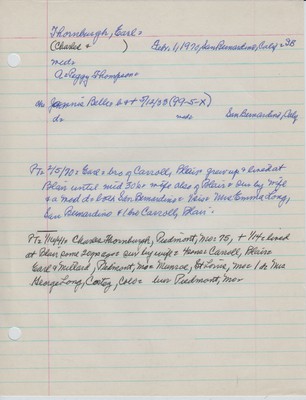 Thornburgh, Earl=
(Charles + ) Feb. 4, 1970, San Bernardino, Calif = 38
med=
A= Peggy Thompson=
Jennie Belle= b++ 5/12/03 (99-5-X)
d= med= San Bernardino, Calif
PT= 2/5/70= Earl= bro of Carroll, Blair= grew up + lived at
Blair until mid 30's= wife also of Blair + sur by wife
+ a med d= both San Bernardino= Mrs Emma Long,
San Bernardino + 1 bro Carroll, Blair=
PT= Charles Thornburgh, Piedmont, Mo= 75, + 1/4= lived
at Blair some 20 years= sur by wife= Carroll, Blair=
Earl + Millard, Piedmont, Mo= Munroe, St Louis, Mo= 1 d= Mrs
George Long, Colo= bur Piedmont, Mo=